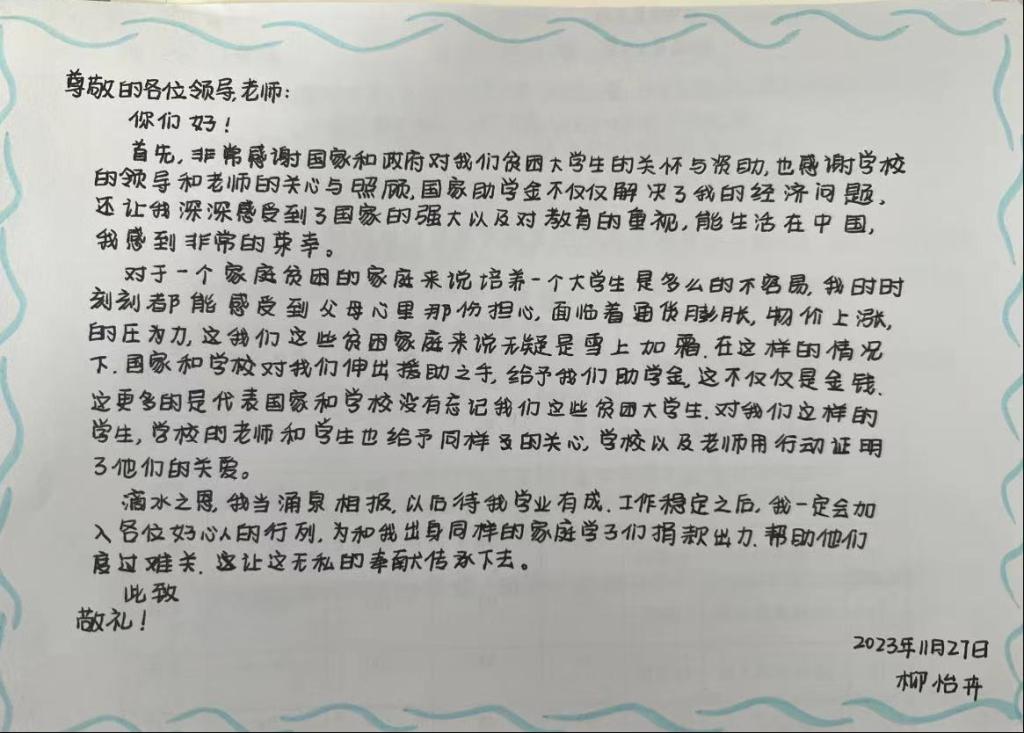 尊敬的各位领导,老师:
你们好!
首先,非常感谢国家和政府对我们贫困大学生的关怀与资助,也感谢学校
的领导和老师的关心与照顾,国家助学金不仅仅解决了我的经济问题,
还让我深深感受到了国家的强大以及对教育的重视,能生活在中国,
我感到非常的荣幸。
对于一个家庭贫困的家庭来说培养一个大学生是多么的不容易,我时时
刻刻都能感受到父母心里那份担心,面临着通货膨胀,物价上涨,
的压为力,这我们这些贫困家庭来说无疑是雪上加霜.在这样的情况
下.国家和学校对我们伸出援助之手,给予我们助学金,这不仅仅是金钱.
这更多的是代表国家和学校没有忘记我们这些贫困大学生.对我们这样的
学生,学校的老师和学生也给予同样多的关心,学校以及老师用行动证明
了他们的关爱。
滴水之恩,我当涌泉相报,以后待我学业有成.工作稳定之后,我一定会加
入各位好心人的行列,为和我出身同样的家庭学子们捐款出力.帮助他们
度过难关.这让这无私的奉献传承下去。
此致
敬礼!
2023年11月27日
柳怡卉